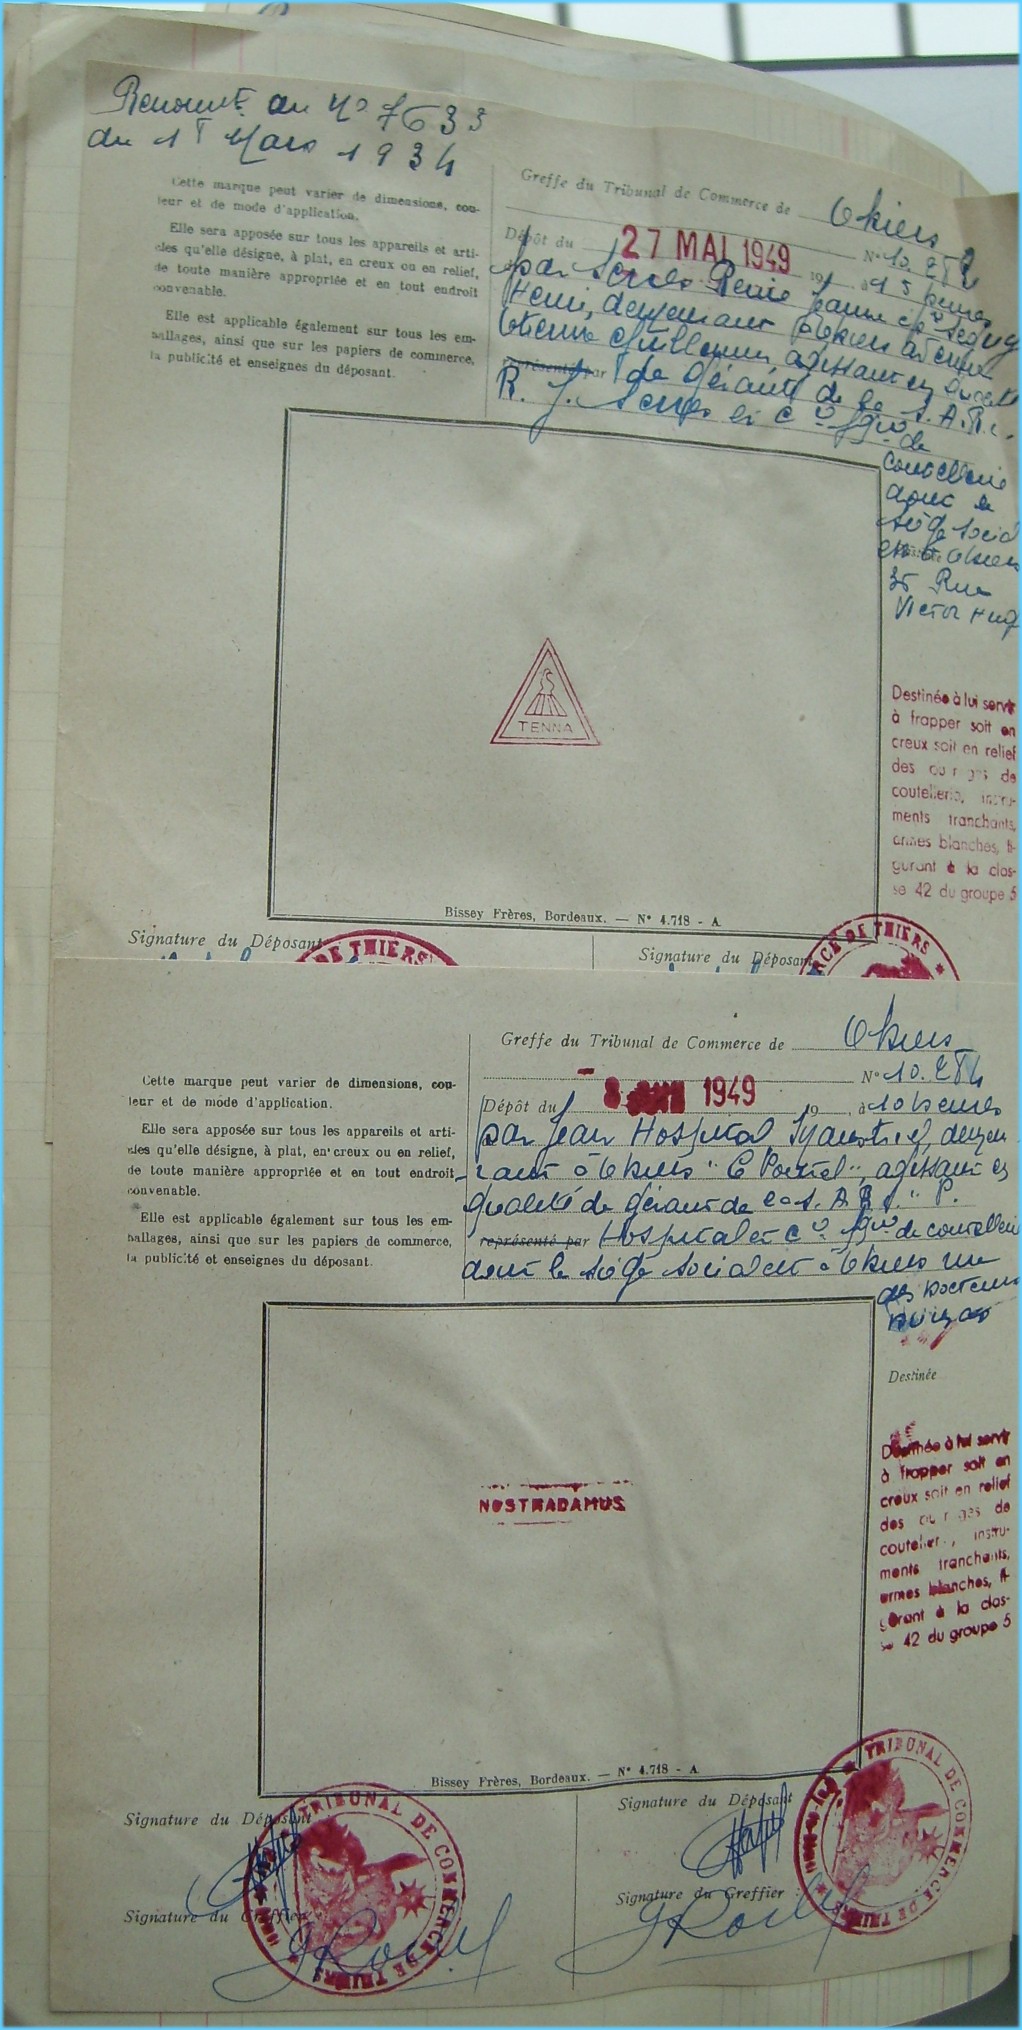 Renouvt du N° 7633
du 1r Mars 1934
Cette marque peut varier de dimensions, cou-
leur et de mode d'application.
Elle sera apposée sur tous les appareils et arti-
cles qu'elle désigne, à plat, en creux ou en relief,
de toute manière appropriée et en tout endroit
convenable.
Elle est applicable également sur tous les em-
ballages, ainsi que sur les papiers de commerce,
la publicité et enseignes du déposant.
Greffe du Tribunal de Commerce de Thiers
N° 10.282
Dépôt du 27 MAI 1949 19 à 15 heures
par Serole Renée Jeanne
Henri, demeurant à Thiers avenue
Etienne Guillemin agissant en qualité
représenté par de gérante de la S.A.R.L.
R. J. et Co
de
coutellerie
dont le
siège social
est à Thiers
35 Rue
Victor Hugo
TENNA
Destinée à lui servir
à frapper soit en
creux soit en relief
des ou r ges de
coutellerie, instru-
ments tranchants,
armes blanches, fi-
gurant à la clas-
se 42 du groupe 5
Bissey Frères, Bordeaux. — N° 4.718 - A
Signature du Déposant
Signature du Déposant
RCE DE THIERS
DE THIERS
Greffe du Tribunal de Commerce de Thiers
N° 10.284
Dépôt du 8 JUIN 1949 19 , à 10 heures
par Jean Hospital, Industriel, demeu-
rant à Thiers, agissant en
qualité de gérant de la S.A.R.L. "P.
représenté par Hospital et Co de coutellerie
dont le siège social est à Thiers rue
des Docteurs
Cette marque peut varier de dimensions, cou-
leur et de mode d'application.
Elle sera apposée sur tous les appareils et arti-
cles qu'elle désigne, à plat, en creux ou en relief,
de toute manière appropriée et en tout endroit
convenable.
Elle est applicable également sur tous les em-
ballages, ainsi que sur les papiers de commerce,
la publicité et enseignes du déposant.
NOSTRADAMUS
Destinée
Destinée à lui servir
à frapper soit en
creux soit en relief
des ou r ges de
couteller , instru-
ments tranchants,
armes blanches, fi-
gurant à la clas-
se 42 du groupe 5
Bissey Frères, Bordeaux. — N° 4.718 - A
Signature du Déposant
Signature du Déposant
Signature du Greffier
Signature du Greffier
TRIBUNAL DE COMMERCE DE THIERS
TRIBUNAL DE COMMERCE DE THIERS